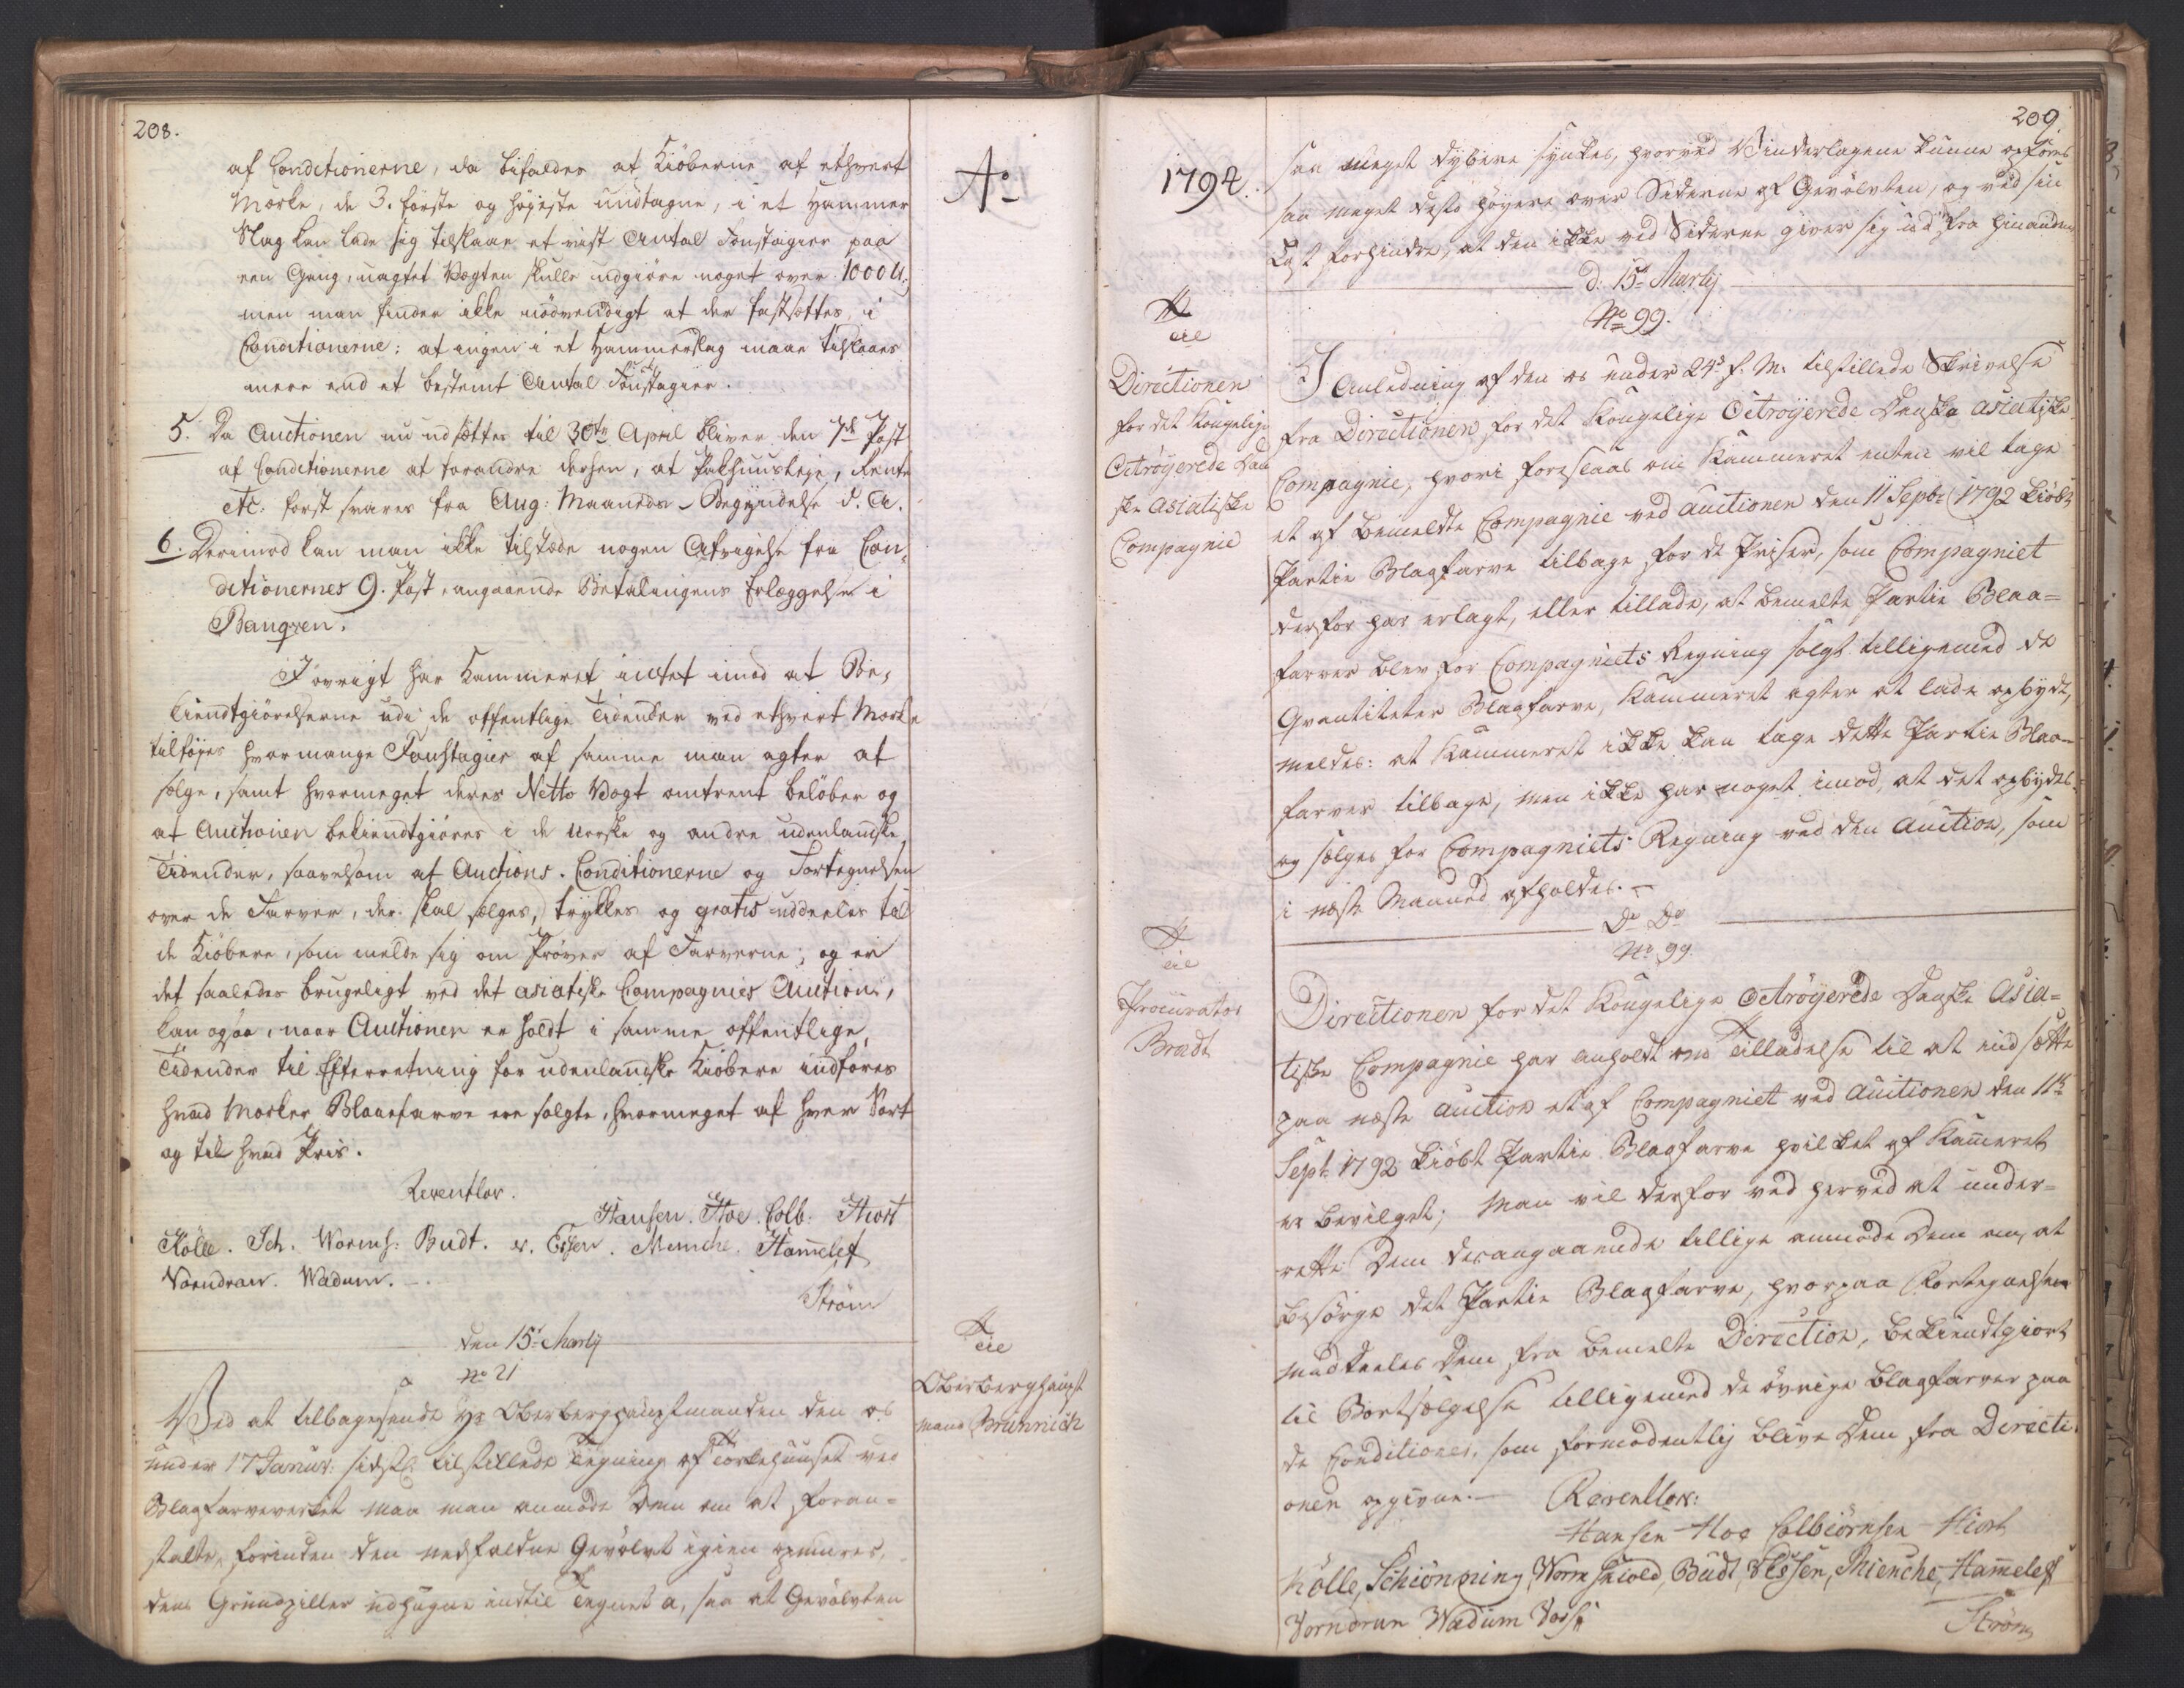 208.
af Conditionerne, da bifaldes at Kiöberne af ethvert
Mærke, de 3. første og høieste undtagne, i et Hammer
Slag kan lade sig tilslaae et vist Antal Foustagier paa
een Gang, uagtet Vægten skulle udgiøre noget over 1000 ℔;
men man finder ikke nödvendigt at der fastsættes, i
Conditionerne: at ingen i et Hammerslag maae tilslaaes
mere end et bestemt Antal Foustagier.
5. Da Auctionen nu udsættes til 30te April bliver den 7de Post
af Conditionerne at forandre derhen, at Pakhuusleje, Rente
etc. først svares fra Aug: Maaneds Begyndelse d. A.
6. Derimod kan man ikke tilstæde nogen Afvigelse fra Con-
ditionernes 9. Post, angaaende Betalingens Erlæggelse i
Banqven.
I øvrigt har Kammeret intet imod at Be-
kiendtgiörelserne udi de offentlige Tidender ved ethvert Mærke
tilføyes hvormange Foustagier af samme man agter at
sælge, samt hvormeget deres Netto Vægt omtrent belöber og
at Auctionen bekiendtgiøres i de norske og andre udenlandske
Tidender, saavelsom at Auctions-Conditionerne og Fortegnelsen
over de Farver, der skal sælges, trykkes og gratis uddeeles til
de Kiöbere, som melde sig om Prøver af Farverne; og er
det saaledes brugeligt ved det asiatiske Compagnies Auction,
kan ogsaa, naar Auctionen er holdt i samme offentlige
Tidender til Efterretning for udenlandske Kiöbere indføres
hvad Mærker Blaaefarve ere solgte, hvormeget af hver Sort
og til hvad Pris.
Reventlov.
Hansen. Hoe. Colb: Hiort
Kölle. Sch. Wormsk: Budt. v. Essen. Menche. Ham̄eleff
Vorndran. Wadum.
Ström
den 15de Martij
No 21
Ved at tilbagesende Hr Oberberghauptmanden den os
under 17 Janur: sidstl: tilstillede Tegning af Törkehuuset ved
Blaafarveverket maa man anmode Dem om at foran-
stalte, forinden den nedfaldne Gevölvt igien opmures,
dens Grundpiller udhugne indtil Tegnet a, saa at Gevölvten
Ao
til
Oberberghaupt
mand Brünnich
1794.
209.
saa meget dybere synkes, hvorved Vinderlagene kunne opføres
saa meget desto höyere over Siderne af Gevölvten, og ved sin
Last forhindre, at den ikke ved Siderne giver sig ud fra hinanden
d: 15de Martij
No 99.
til
Directionen
for det Kongelige
Octroyerede Dan
ske Asiatiske
Compagnie
I Anledning af den os under 24de f. M. tilstillede Skrivelse
fra Directionen for det Kongelige Octroyerede Danske asiatiske
Compagnie, hvori foreslaaes om Kammeret enten vil tage
et af bemeldte Compagnie ved Auctionen den 11 Sepbr 1792 kiöbt
Partie Blaafarve tilbage for de Priser, som Compagniet
derfor har erlagt, eller tillade, at bemelte Partie Blaa-
farver blev for Compagniets Regning solgt tilligemed de
Qvantiteter Blaafarve, Kammeret agter at lade opbyde,
meldes: at Kammeret ikke kan tage dette Partie Blaa-
farver tilbage, men ikke har noget imod, at det opbydes
og sælges for Compagniets Regning ved den Auction, som
i næste Maaned afholdes.
Do Do
No 99
til
Procurator
Bradt
Directionen for det Kongelige Octroyerede Danske Asia-
tiske Compagnie har anholdt om Tilladelse til at indsætte
paa næste Auction et af Compagniet ved Auctionen den 11te
Sept: 1792 kiöbt Partie Blaafarve hvilket af Kam̄eret
er bevilget; Man vil derfor ved herved at under-
rette Dem desangaaende tillige anmode Dem om, at
besörge det Partie Blaafarve, hvorpaa Fortegnelsen
meddeeles Dem fra bemelte Direction, bekiendtgiort
til Bortsælgelse tilligemed de övrige Blaafarver paa
de Conditioner, som formodentlig blive Dem fra Directi-
onen opgivne.
Reventlow:
Hansen Hoe Colbiörnsen Hiort
Kölle, Schiönning, Wormskiold, Budt, v Essen, Mienche, Ham̄eleff
Vorndran Wadum
Ström